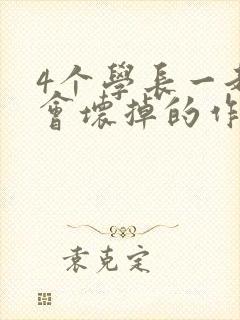 4个學長一
會壞掉的作
袁克定